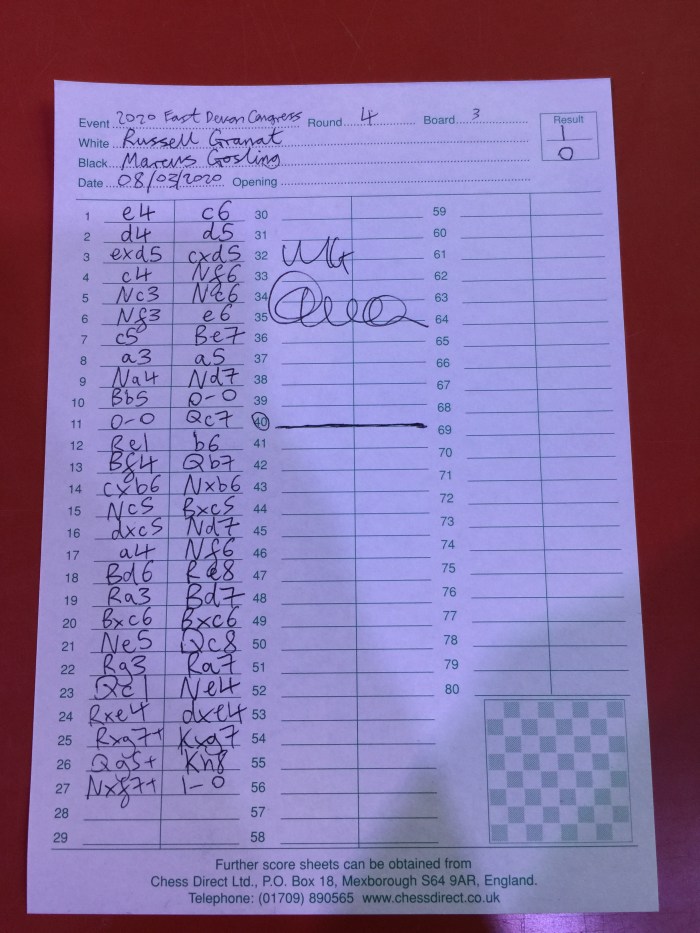 Event 2020 East Devon Congress Round 4 Board 3 Result
White Russell Granat 1
Black Marcus Gosling 0
Date 08/03/2020 Opening
1 e4 c6 30 59
2 d4 d5 31 60
3 exd5 cxd5 32 61
4 c4 Nf6 33 62
5 Nc3 Nc6 34 63
6 Nf3 e6 35 64
7 c5 Be7 36 65
8 a3 a5 37 66
9 Na4 Nd7 38 67
10 Bb5 0-0 39 68
11 0-0 Qc7 40 69
12 Re1 b6 41 70
13 Bf4 Qb7 42 71
14 cxb6 Nxb6 43 72
15 Nc5 Bxc5 44 73
16 dxc5 Nd7 45 74
17 a4 Nf6 46 75
18 Bd6 Re8 47 76
19 Ra3 Bd7 48 77
20 Bxc6 Bxc6 49 78
21 Ne5 Qc8 50 79
22 Rg3 Ra7 51 80
23 Qc1 Ne4 52
24 Rxe4 dxe4 53
25 Rxg7+ Kxg7 54
26 Qg5+ Kh8 55
27 Nxf7+ 1-0 56
28 57
29 58
Further score sheets can be obtained from
Chess Direct Ltd., P.O. Box 18, Mexborough S64 9AR, England.
Telephone: (01709) 890565 www.chessdirect.co.uk